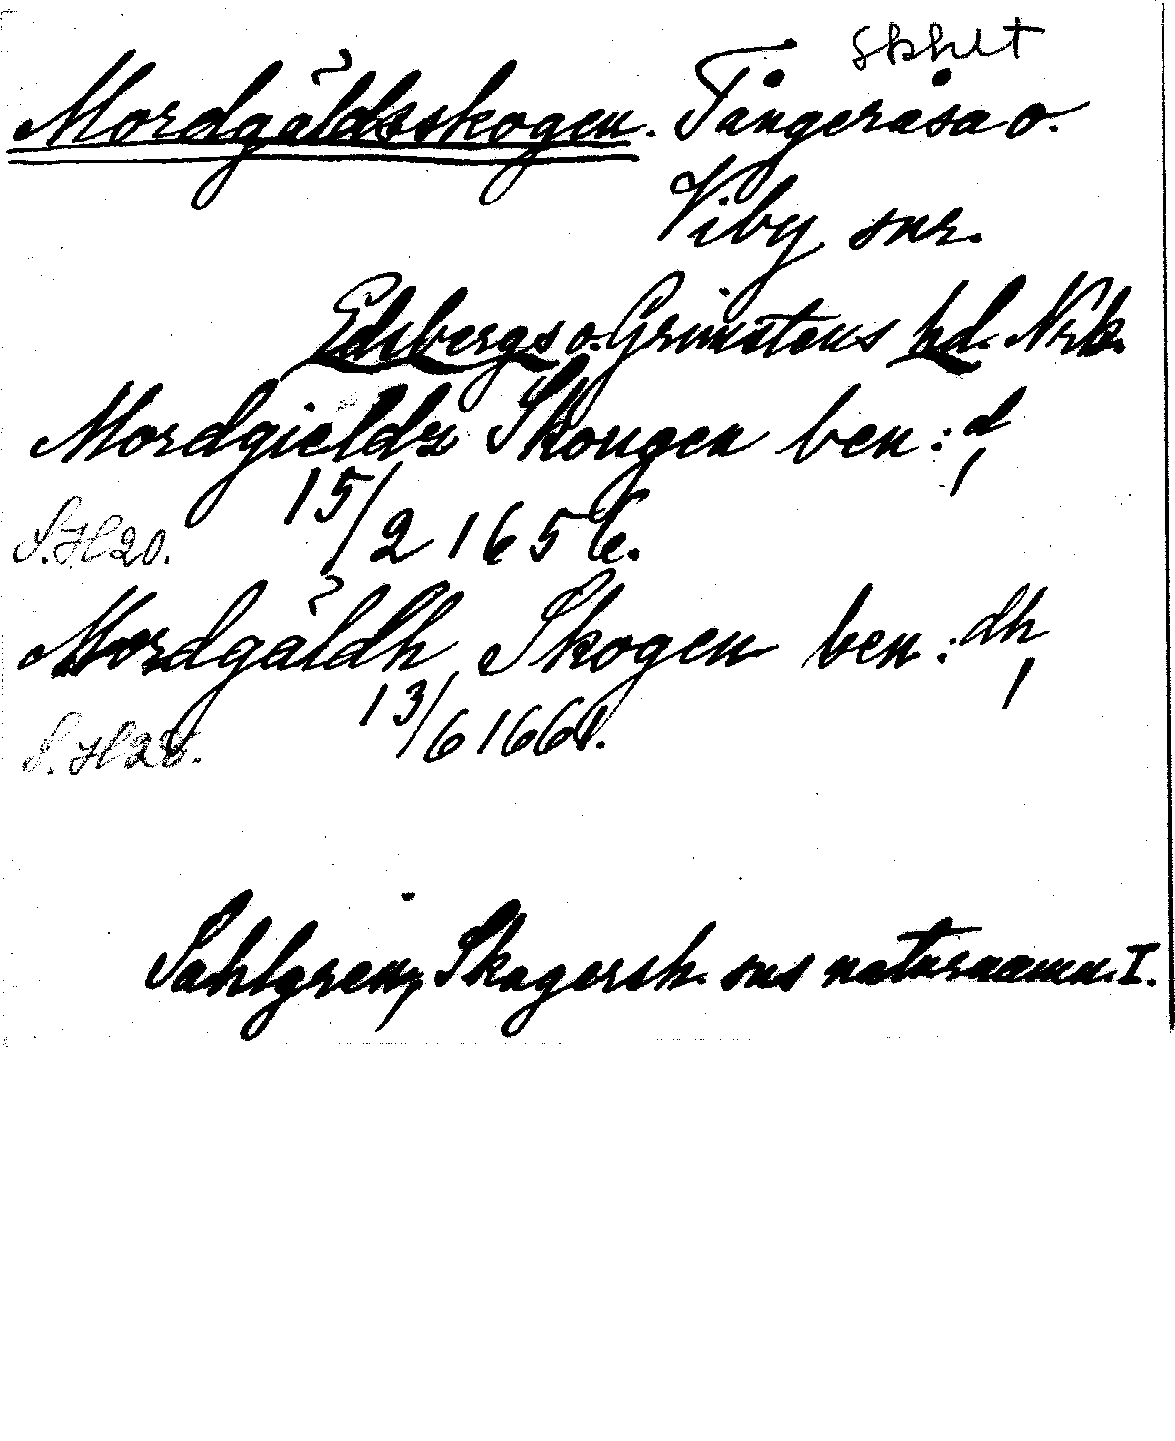 skhlt
Mordgäldsskogen. Tångeråsa o.
Viby snr.
Edsbergs o. Grimstens hd. Nrk.
Mordgieldz Skougen ben:d
15/2 1656.
S. H 20.
Mordgäldh Skogen ben:dh
13/6 1661.
S. H 28.
Sahlgren, Skagersh. sns naturnamn. I.